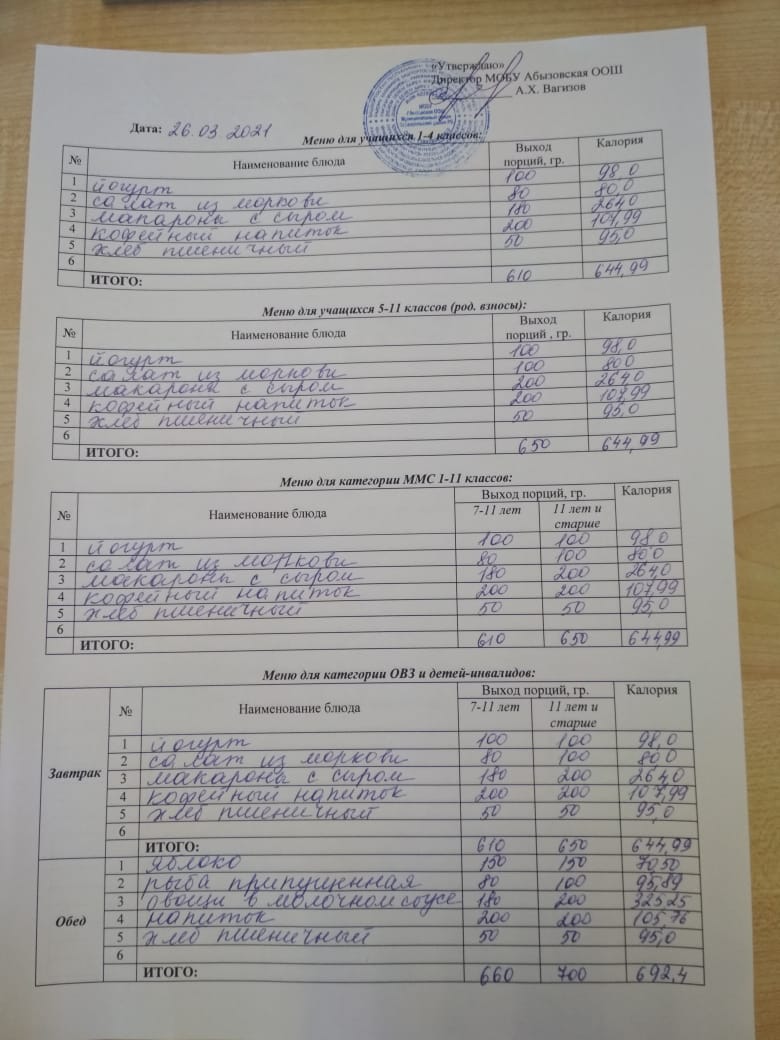 «Утверждаю»
Директор МОБУ Абызовская ООШ
А.Х. Вагизов
Дата: 26.03 2021
Меню для учащихся 1-4 классов:
№ Наименование блюда Выход порций, гр. Калория
1 йогурт 100 98,0
2 салат из моркови 80 80,0
3 макароны с сыром 180 264,0
4 кофейный напиток 200 107,99
5 хлеб пшеничный 50 95,0
6
ИТОГО: 610 644,99
Меню для учащихся 5-11 классов (род. взносы):
№ Наименование блюда Выход порций , гр. Калория
1 йогурт 100 98,0
2 салат из моркови 100 80,0
3 макароны с сыром 200 264,0
4 кофейный напиток 200 107,99
5 хлеб пшеничный 50 95,0
6
ИТОГО: 650 644,99
Меню для категории ММС 1-11 классов:
№ Наименование блюда Выход порций, гр. Калория
7-11 лет 11 лет и старше
1 йогурт 100 100 98,0
2 салат из моркови 80 100 80,0
3 макароны с сыром 180 200 264,0
4 кофейный напиток 200 200 107,99
5 хлеб пшеничный 50 50 95,0
6
ИТОГО: 610 650 644,99
Меню для категории ОВЗ и детей-инвалидов:
№ Наименование блюда Выход порций, гр. Калория
7-11 лет 11 лет и старше
Завтрак
1 йогурт 100 100 98,0
2 салат из моркови 80 100 80,0
3 макароны с сыром 180 200 264,0
4 кофейный напиток 200 200 107,99
5 хлеб пшеничный 50 50 95,0
6
ИТОГО: 610 650 644,99
Обед
1 яблоко 150 150 70,50
2 рыба припущенная 80 100 95,89
3 овощи в молочном соусе 180 200 325,25
4 напиток 200 200 105,76
5 хлеб пшеничный 50 50 95,0
6
ИТОГО: 660 700 692,4